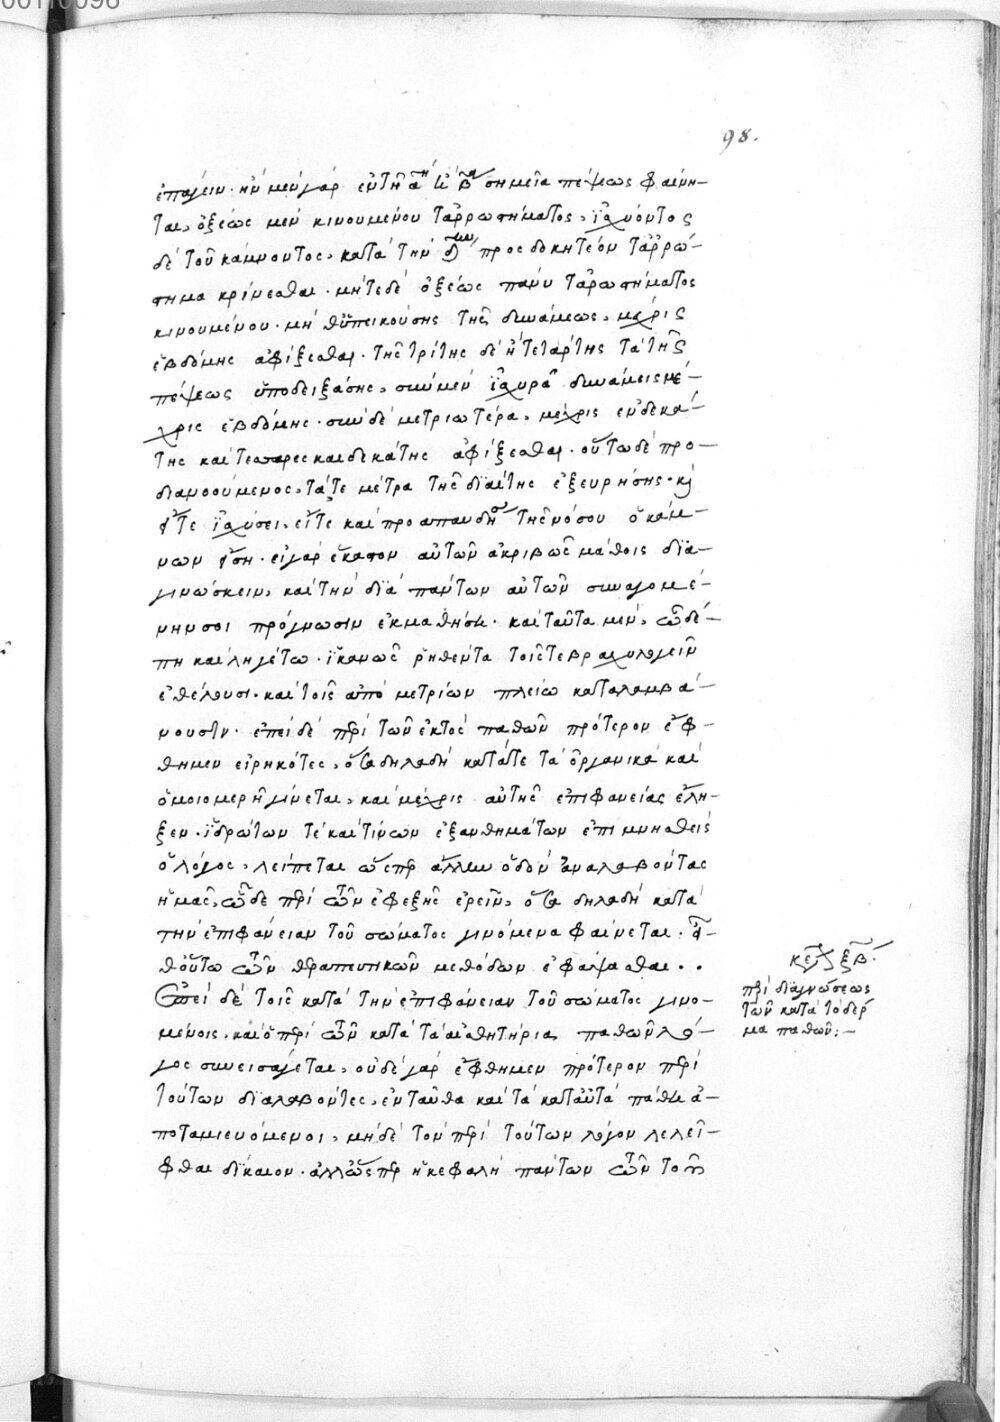 98.
ἐπαγειν· ἢν μὲν γὰρ ἐν τῇ α ἢ β σημεῖα πέψεως φαίνη-
ται, ὀξέως μὲν κινουμένου τ' ἀρρωστήματος, ἰσχύοντος
δὲ τοῦ κάμνοντος, κατὰ τὴν δ προσδοκητέον τ' ἀρρώ-
στημα κρίνεσθαι· μήτε δὲ ὀξέως πάνυ τ' ἀρωστήματος
κινουμένου· μήθ' ὑπεικούσης τῆς δυνάμεως, μέχρις
ἑβδόμης ἀφίξεσθαι· τῆς τρίτης δὲ ἢ τετάρτης τὰ τῆς
πέψεως ὑποδειξάσης, σὺν μὲν ἰσχυρᾷ δυνάμει μέ-
χρις ἑβδόμης· σὺν δὲ μετριωτέρα, μέχρις ἑνδεκά-
της καὶ τεσσαρεσκαιδεκάτης ἀφίξεσθαι· οὕτω δὲ προ-
διανοούμενος, τά τε μέτρα τῆς διαίτης ἐξευρήσης· καὶ
εἴτε ἰσχύσει, εἴτε καὶ προαπαυδήσει τῆς νόσου ὁ κάμ-
νων εἴση· εἰ γὰρ ἕκαστον αὐτῶν ἀκριβῶς μάθοις δια-
γινώσκειν, καὶ τὴν διὰ πάντων αὐτῶν συναγομέ-
νην σοι πρόγνωσιν ἐκμαθήση· καὶ ταῦτα μὲν, ὧδέ
πη καὶ ληγέτω· ἱκανῶς ῥηθέντα τοῖς τε βραχυλογεῖν
ἐθέλουσι· καὶ τοῖς ἀπὸ μετρίων πλείω καταλαμβά-
νουσιν· ἐπεὶ δὲ περὶ τῶν ἐκτὸς παθῶν πρότερον ἔφ-
θημεν εἰρηκότες, ὅσα δηλαδὴ κατά τε τὰ ὀργανικὰ καὶ
ὁμοιομερῆ γίνεται, καὶ μέχρις αὐτῆς ἐπιφανείας ἔλη-
ξεν· ἱδρώτων τὲ καὶ τίνων ἐξανθημάτων ἐπιμνησθεὶς
ὁ λόγος, λείπεται ὥσπερ ἄλλην ὁδὸν ἀναλαβόντας
ἡμᾶς, ὧδε περὶ τῶν ἐφεξῆς ἐρεῖν, ὅσα δηλαδὴ κατὰ
τὴν ἐπιφάνειαν τοῦ σώματος γινόμενα φαίνεται· εἶ-
θ' οὕτω τῶν θεραπευτικῶν μεθόδων ἐφάψασθαι··
Ἐπεὶ δὲ τοῖς κατὰ τὴν ἐπιφάνειαν τοῦ σώματος γινο-
μένοις, καὶ ὁ περὶ τῶν κατὰ τὰ αἰσθητήρια παθῶν λό-
γος συνεισάγεται, οὐδὲ γὰρ ἔφθημεν πρότερον περὶ
τούτων διαλαβόντες, ἐνταῦθα καὶ τὰ κατ' αὐτὰ πάθη ἀ-
ποταμιευόμενοι, μηδὲ τὸν περὶ τούτων λόγον λελεῖ-
φθαι δίκαιον· ἀλλ' ὥσπερ ἡ κεφαλὴ πάντων τῶν τοῦ
κεφ ξβ·
περὶ διαγνώσεως
τῶν κατὰ τὸ δέρ
μα παθῶν:—